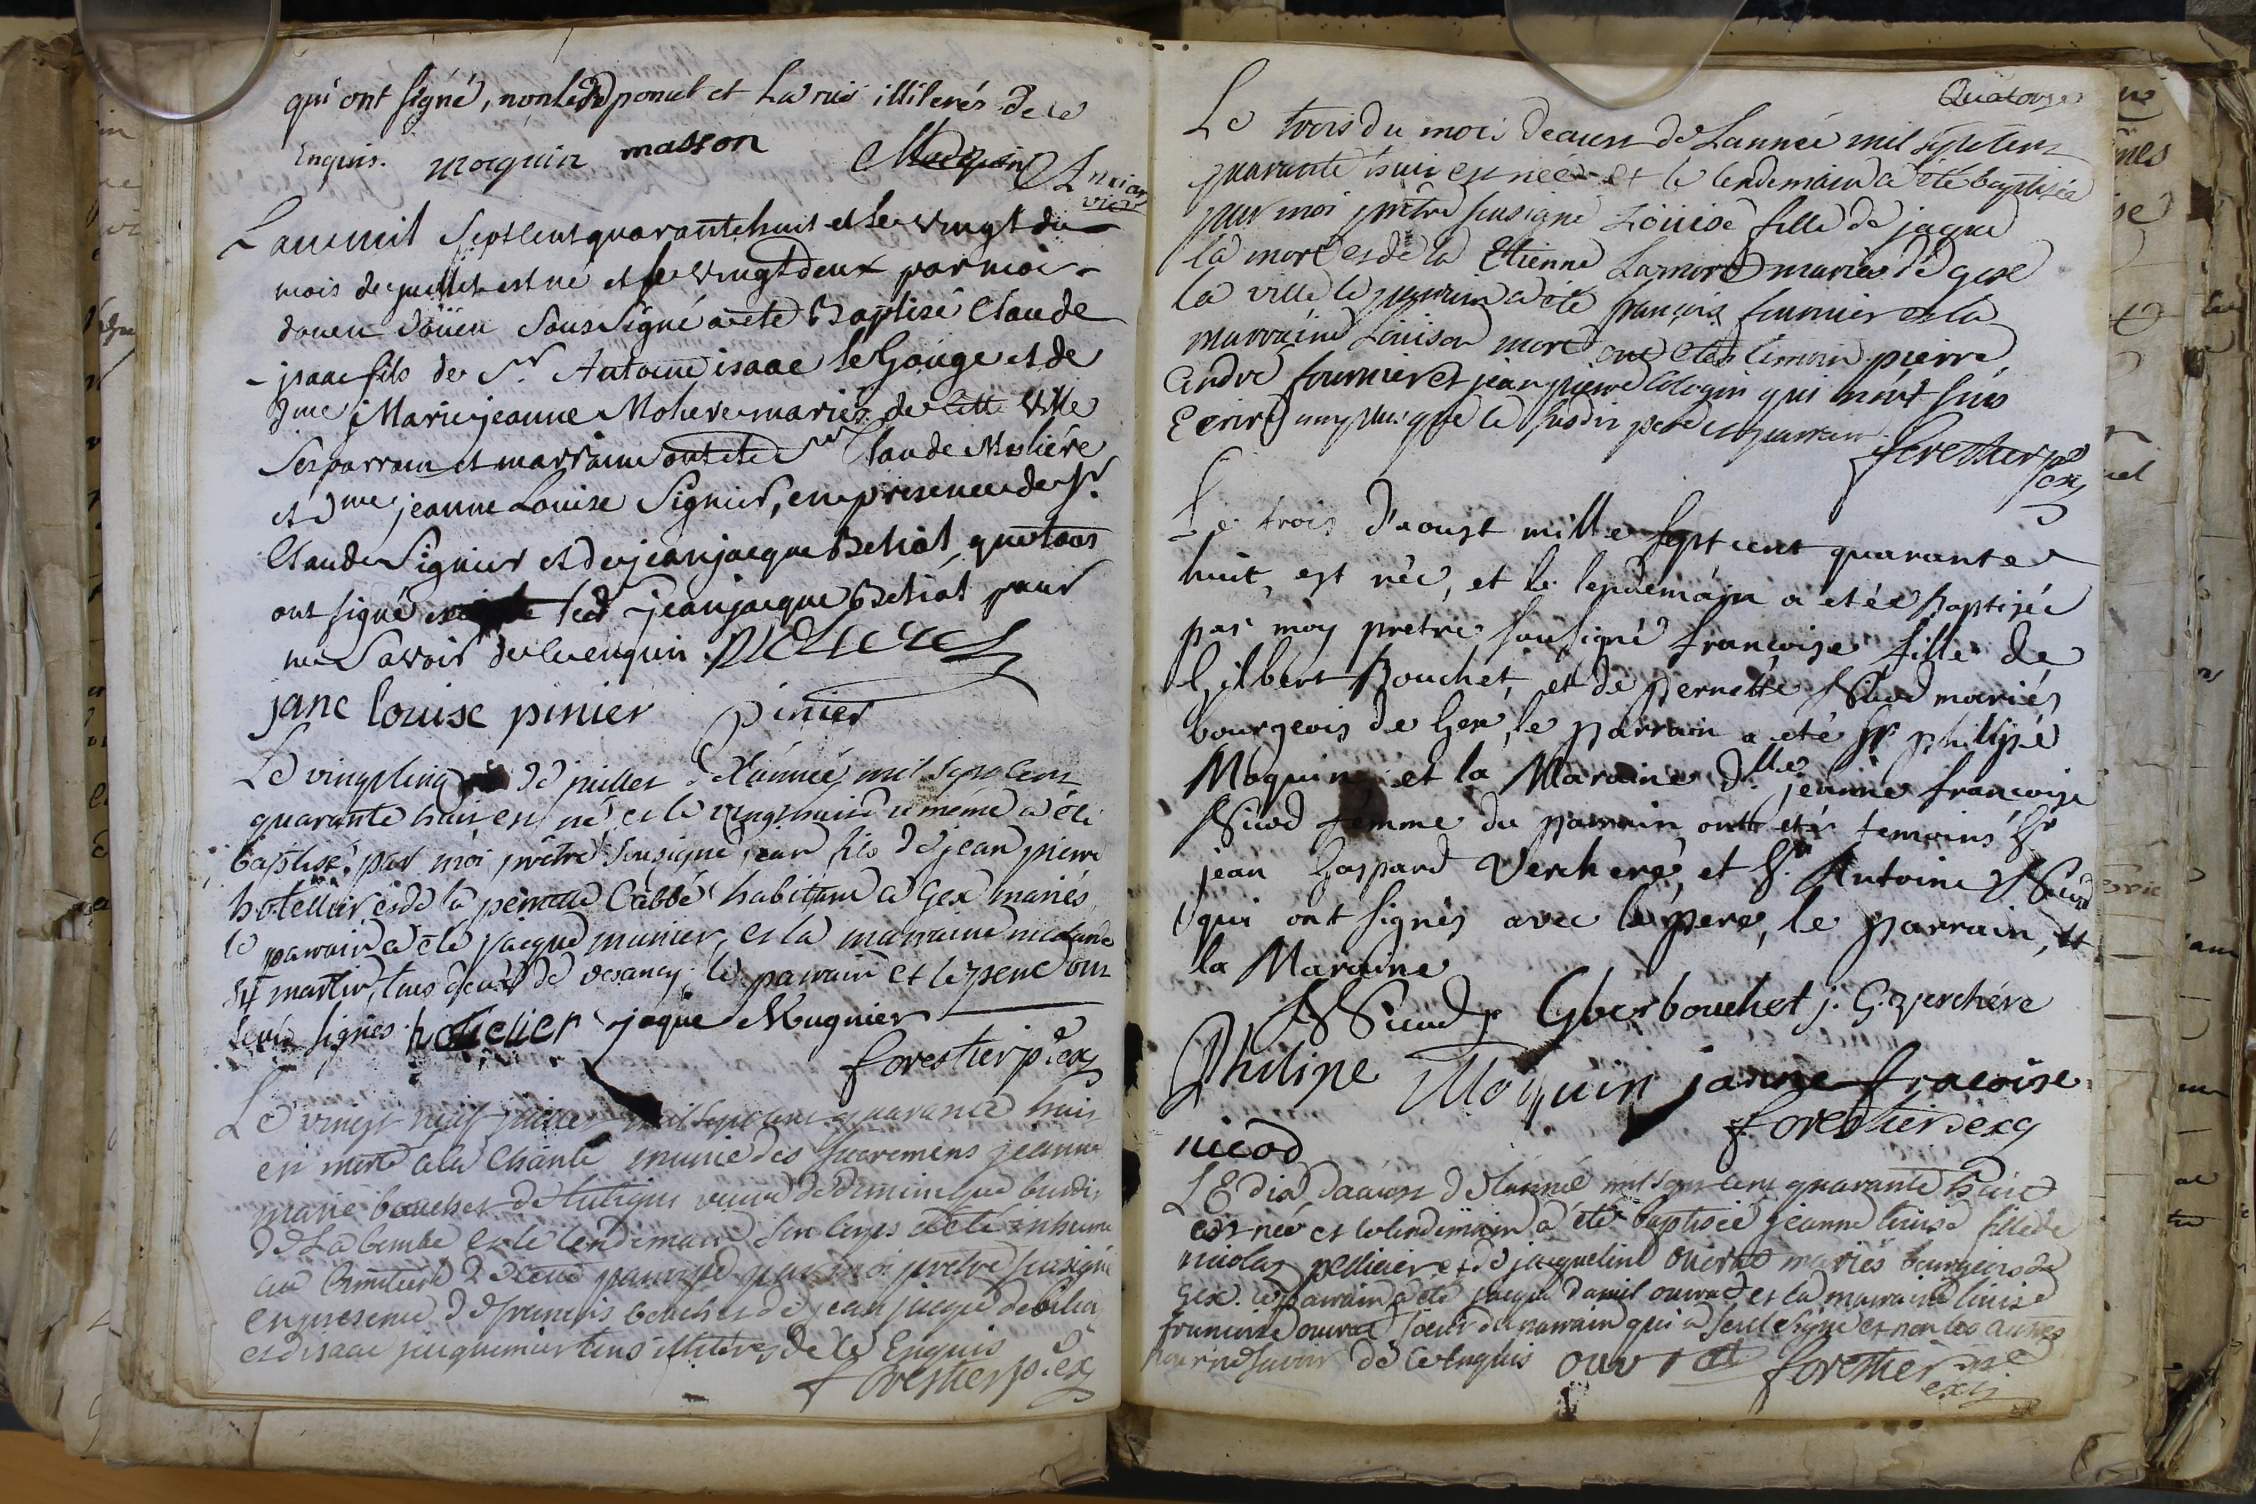 qui ont signé, non led ponut et La rue illiterés de ce
Enquis. moquin masson
L'an mil sept cent quarante huit et le vingt du
mois de juillet est né et le vingt deux par moi
doüen soussigné a été Baptisé Claude
isaac fils de Sr Antoine isaac le Gouge et de
dme Marie jeanne Moliere mariés de cette ville
Ses parrain et marraine ont été Sr Claude Moliére
et dme jeanne Louise Signier, en presence de Sr
Claude Signier et de jean jacque Betiat qui tous
ont signé led jean jacque Betiat pour
ne savoir de ce enquis
jane louise pinier pinier
Le vingt cinq de juillet de l'année mil sept cent
quarante huit est né, et le vingt huit du même a été
baptisé par moi prêtre sousigné jean fils de jean pierre
hotellier et de la pernette l'abbé habitant a Gex mariés
le parrain a été jacque munier, et la marraine nicolarde
martin, tous deux de vesancy, le parrain et le pere ont
signés hotelier jaque Mugnier
forestier p. ex
Le vingt neuf juillet mil sept cent quarante huit
est morte a la Charité munie des sacremens jeanne
marie bouchet de veuve de Dominique
de La Combe et le lendemain son corps a été inhumé
au Cimetiere de cette paroisse par moi prêtre sousigné
en presence de françois bouchet de jean jacque
et d'isaac jacquinier tous illiterés de ce Enquis
forestier p. ex
Quatorze
Le trois du mois d'aoust de L'année mil sept cent
quarante huit est née et le lendemain a été baptisée
par moi prêtre sousigné Louise fille de jaque
la more et de la Etienne Lamore mariés de gex
la ville le parrain a été françois fournier et la
marraine Louison more ont étés temoin pierre
andré fournier et jean pierre qui n'ont sus
Ecrire non plus que le susdit pere et parrain
forestier p. ex
Le trois d'aoust mille sept cent quarante
huit, est née, et le lendemain a etée baptisée
par moy pretre sousigné françoise fille de
Gilbert Bouchet, et de pernette Nicod mariés
bourgeois de Gex, le parrain a été Sr philipe
Moquin et la Maraine dlle jeanne françoise
Nicod femme du parrain ont etés temoins Sr
jean Gaspard Verchere, et Sr Antoine Nicod
qui ont signés avec le pere, le parrain, et
la Maraine
Nicod Gber bouchet j. G. Verchére
Philipe Moquin janne fracoise
forestier p ex
nicod
LE dix d'aoust de L'année mil sept cent quarante huit
est née et le lendemain a été baptisée jeanne louise fille de
nicolas pellicier et de jacqueline ouvrat mariés bourgeois de
Gex. le parrain a été jacque daniel ouvrat et la marraine louise
francoise ouvrat soeur du parrain qui a seul signé et non les autres
pour ne savoir de ce enquis ouvrat forestier pre
ex